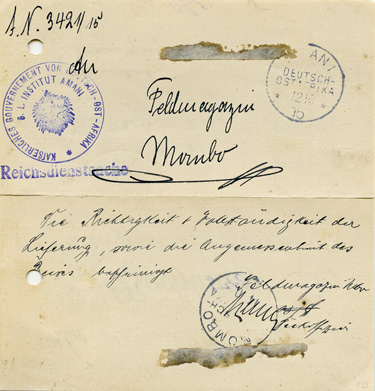 J.N. 3421/15
KAISERLICHES GOUVERNEMENT VON DEUTSCH-OST-AFRIKA
B. L. INSTITUT AMANI
An
AMANI
DEUTSCH-
OSTAFRIKA
12 10
15
Feldmagazin
Mombo
Reichsdienstsache
Die Richtigkeit & Vollständigkeit der
Lieferung, sowie die Angemessenheit des
Preises bescheinigt
Feldmagazin
MOMBO